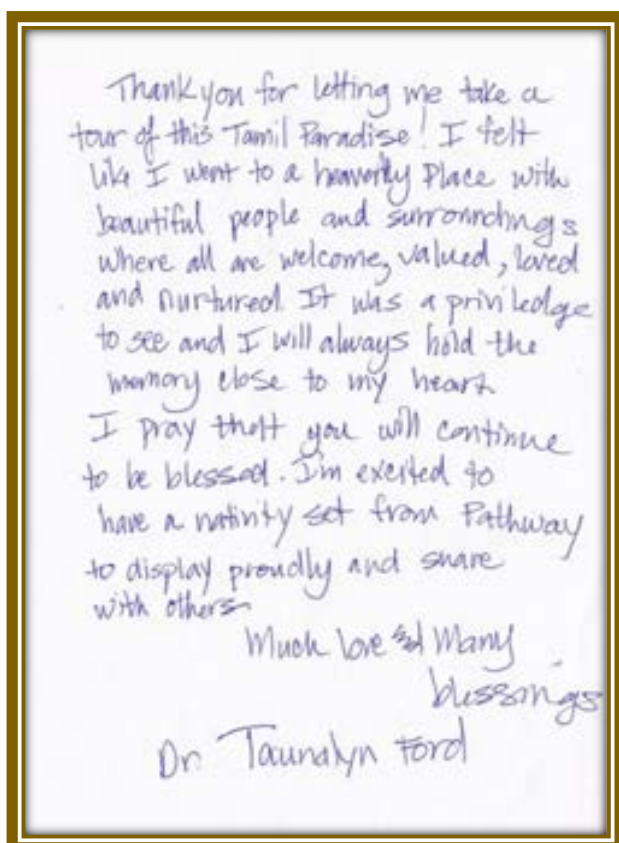 Thank you for letting me take a
tour of this Tamil Paradise! I felt
like I went to a heavenly Place with
beautiful people and surroundings
where all are welcome, valued, loved
and nurtured. It was a priviledge
to see and I will always hold the
memory close to my heart.
I pray that you will continue
to be blessed. I'm excited to
have a nativity set from Pathway
to display proudly and share
with others.
Much love and Many
blessings
Dr. Taunalyn Ford